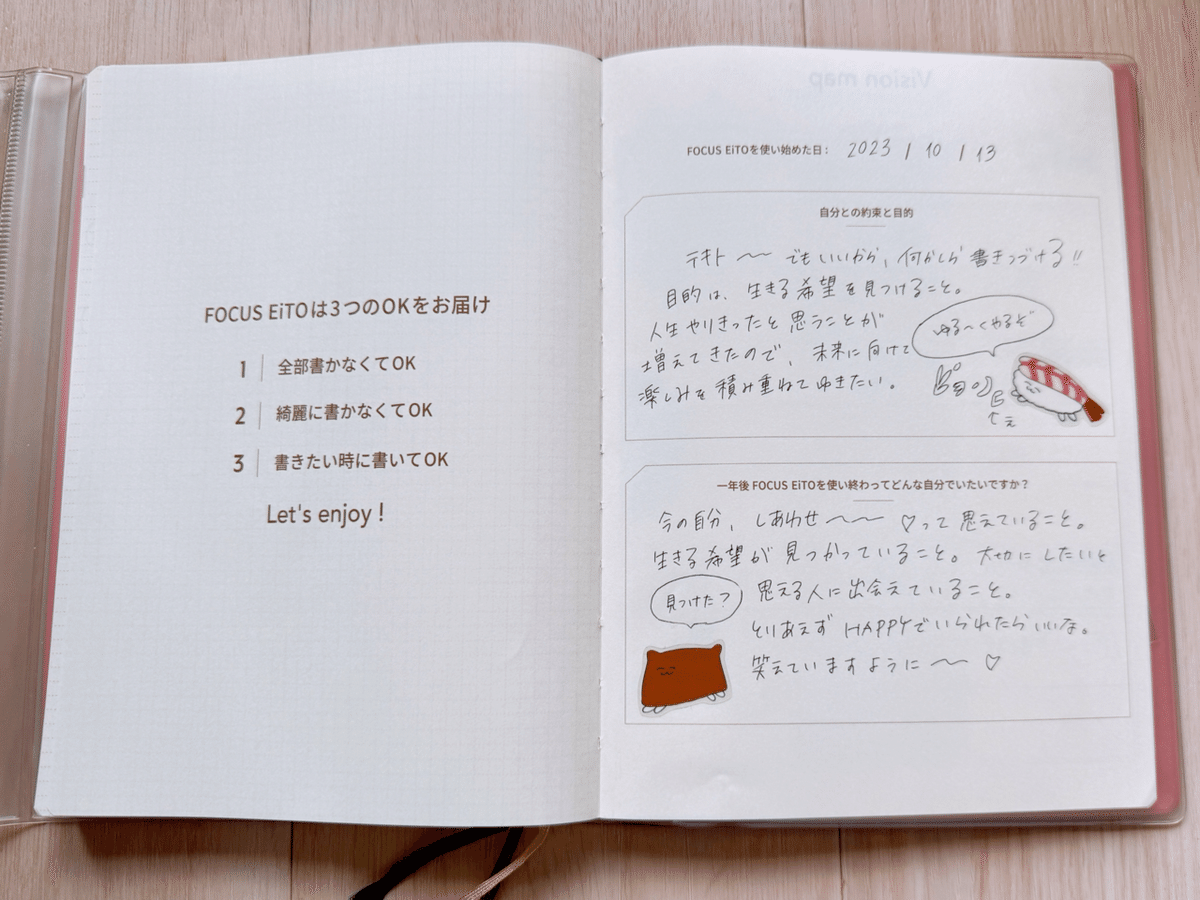 FOCUS EiTOは3つのOKをお届け
1 全部書かなくてOK
2 綺麗に書かなくてOK
3 書きたい時に書いてOK
Let's enjoy !
Vision map
FOCUS EiTOを使い始めた日: 2023 / 10 / 13
自分との約束と目的
テキトー〜〜でもいいから、何かしら書きつづける!!
目的は、生きる希望を見つけること。
人生やりきったと思うことが
増えてきたので、未来に向けて
楽しみを積み重ねてゆきたい。
ゆる〜くやるぞ
一年後 FOCUS EiTOを使い終わってどんな自分でいたいですか?
今の自分、しあわせ〜〜♡って思えていること。
生きる希望が見つかっていること。大切にしたいと
思える人に出会えていること。
とりあえずHAPPYでいられたらいいな。
笑えていますように〜〜♡
見つけた?